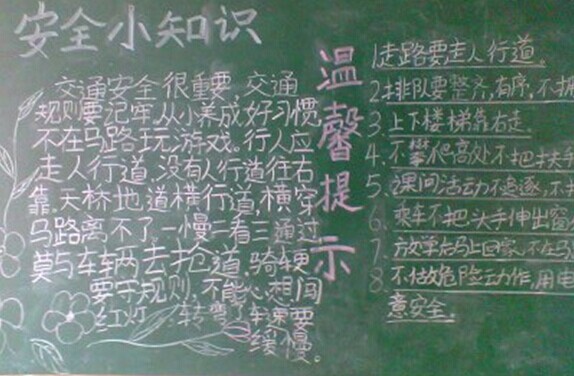 安全小知识
交通安全很重要,交通
规则要记牢,从小养成好习惯,
不在马路上玩游戏。行人应
走人行道,没有人行道往右
靠,天桥地道横行道,横穿
马路离不了,一慢二看三通过
莫与车辆去抢道,骑
要守规则,不能心想闯
红灯,转弯
缓慢。
温馨提示
1.走路要走人行道。
2.排队要整齐,有序,不拥
3.上下楼梯靠右走。
4.不攀爬高处不把扶手
5.课间活动不追逐,不
6.乘车不把头手伸出窗
7.放学后马上回家,不在马
8.不做危险动作,用电
意安全。